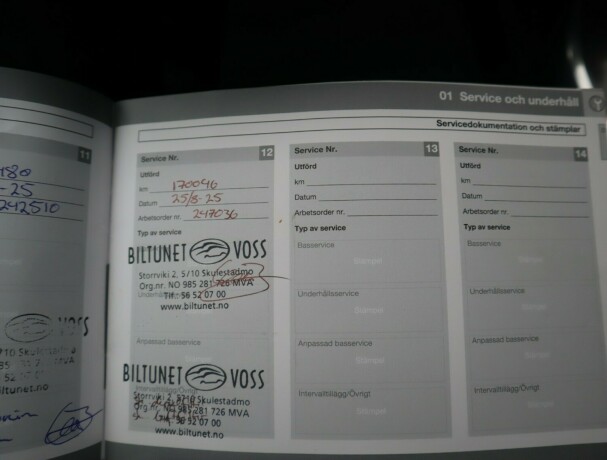 01 Service och underhåll
Servicedokumentation och stämplar
11
180
-25
242510
5710 Skulestadmo
52 07 00
biltunet.no
Service Nr. 12
Utförd
km 170046
Datum 25/8-25
Arbetsorder nr. 247036
Typ av service
BILTUNET VOSS
Storrviki 2, 5710 Skulestadmo
Org.nr. NO 985 281 726 MVA
Tlf. 56 52 07 00
www.biltunet.no
Anpassad basservice
BILTUNET VOSS
Intervalltillägg/Övrigt
Storrviki 2, 5710 Skulestadmo
Org.nr. NO 985 281 726 MVA
Tlf. 56 52 07 00
www.biltunet.no
Service Nr. 13
Utförd
km
Datum
Arbetsorder nr.
Typ av service
Basservice
Stämpel
Underhållsservice
Stämpel
Anpassad basservice
Stämpel
Intervalltillägg/Övrigt
Stämpel
Service Nr. 14
Utförd
km
Datum
Arbetsorder nr.
Typ av service
Basservice
Stämpel
Underhållsservice
Stämpel
Anpassad basservice
Stämpel
Intervalltillägg/Övrigt
Stämpel